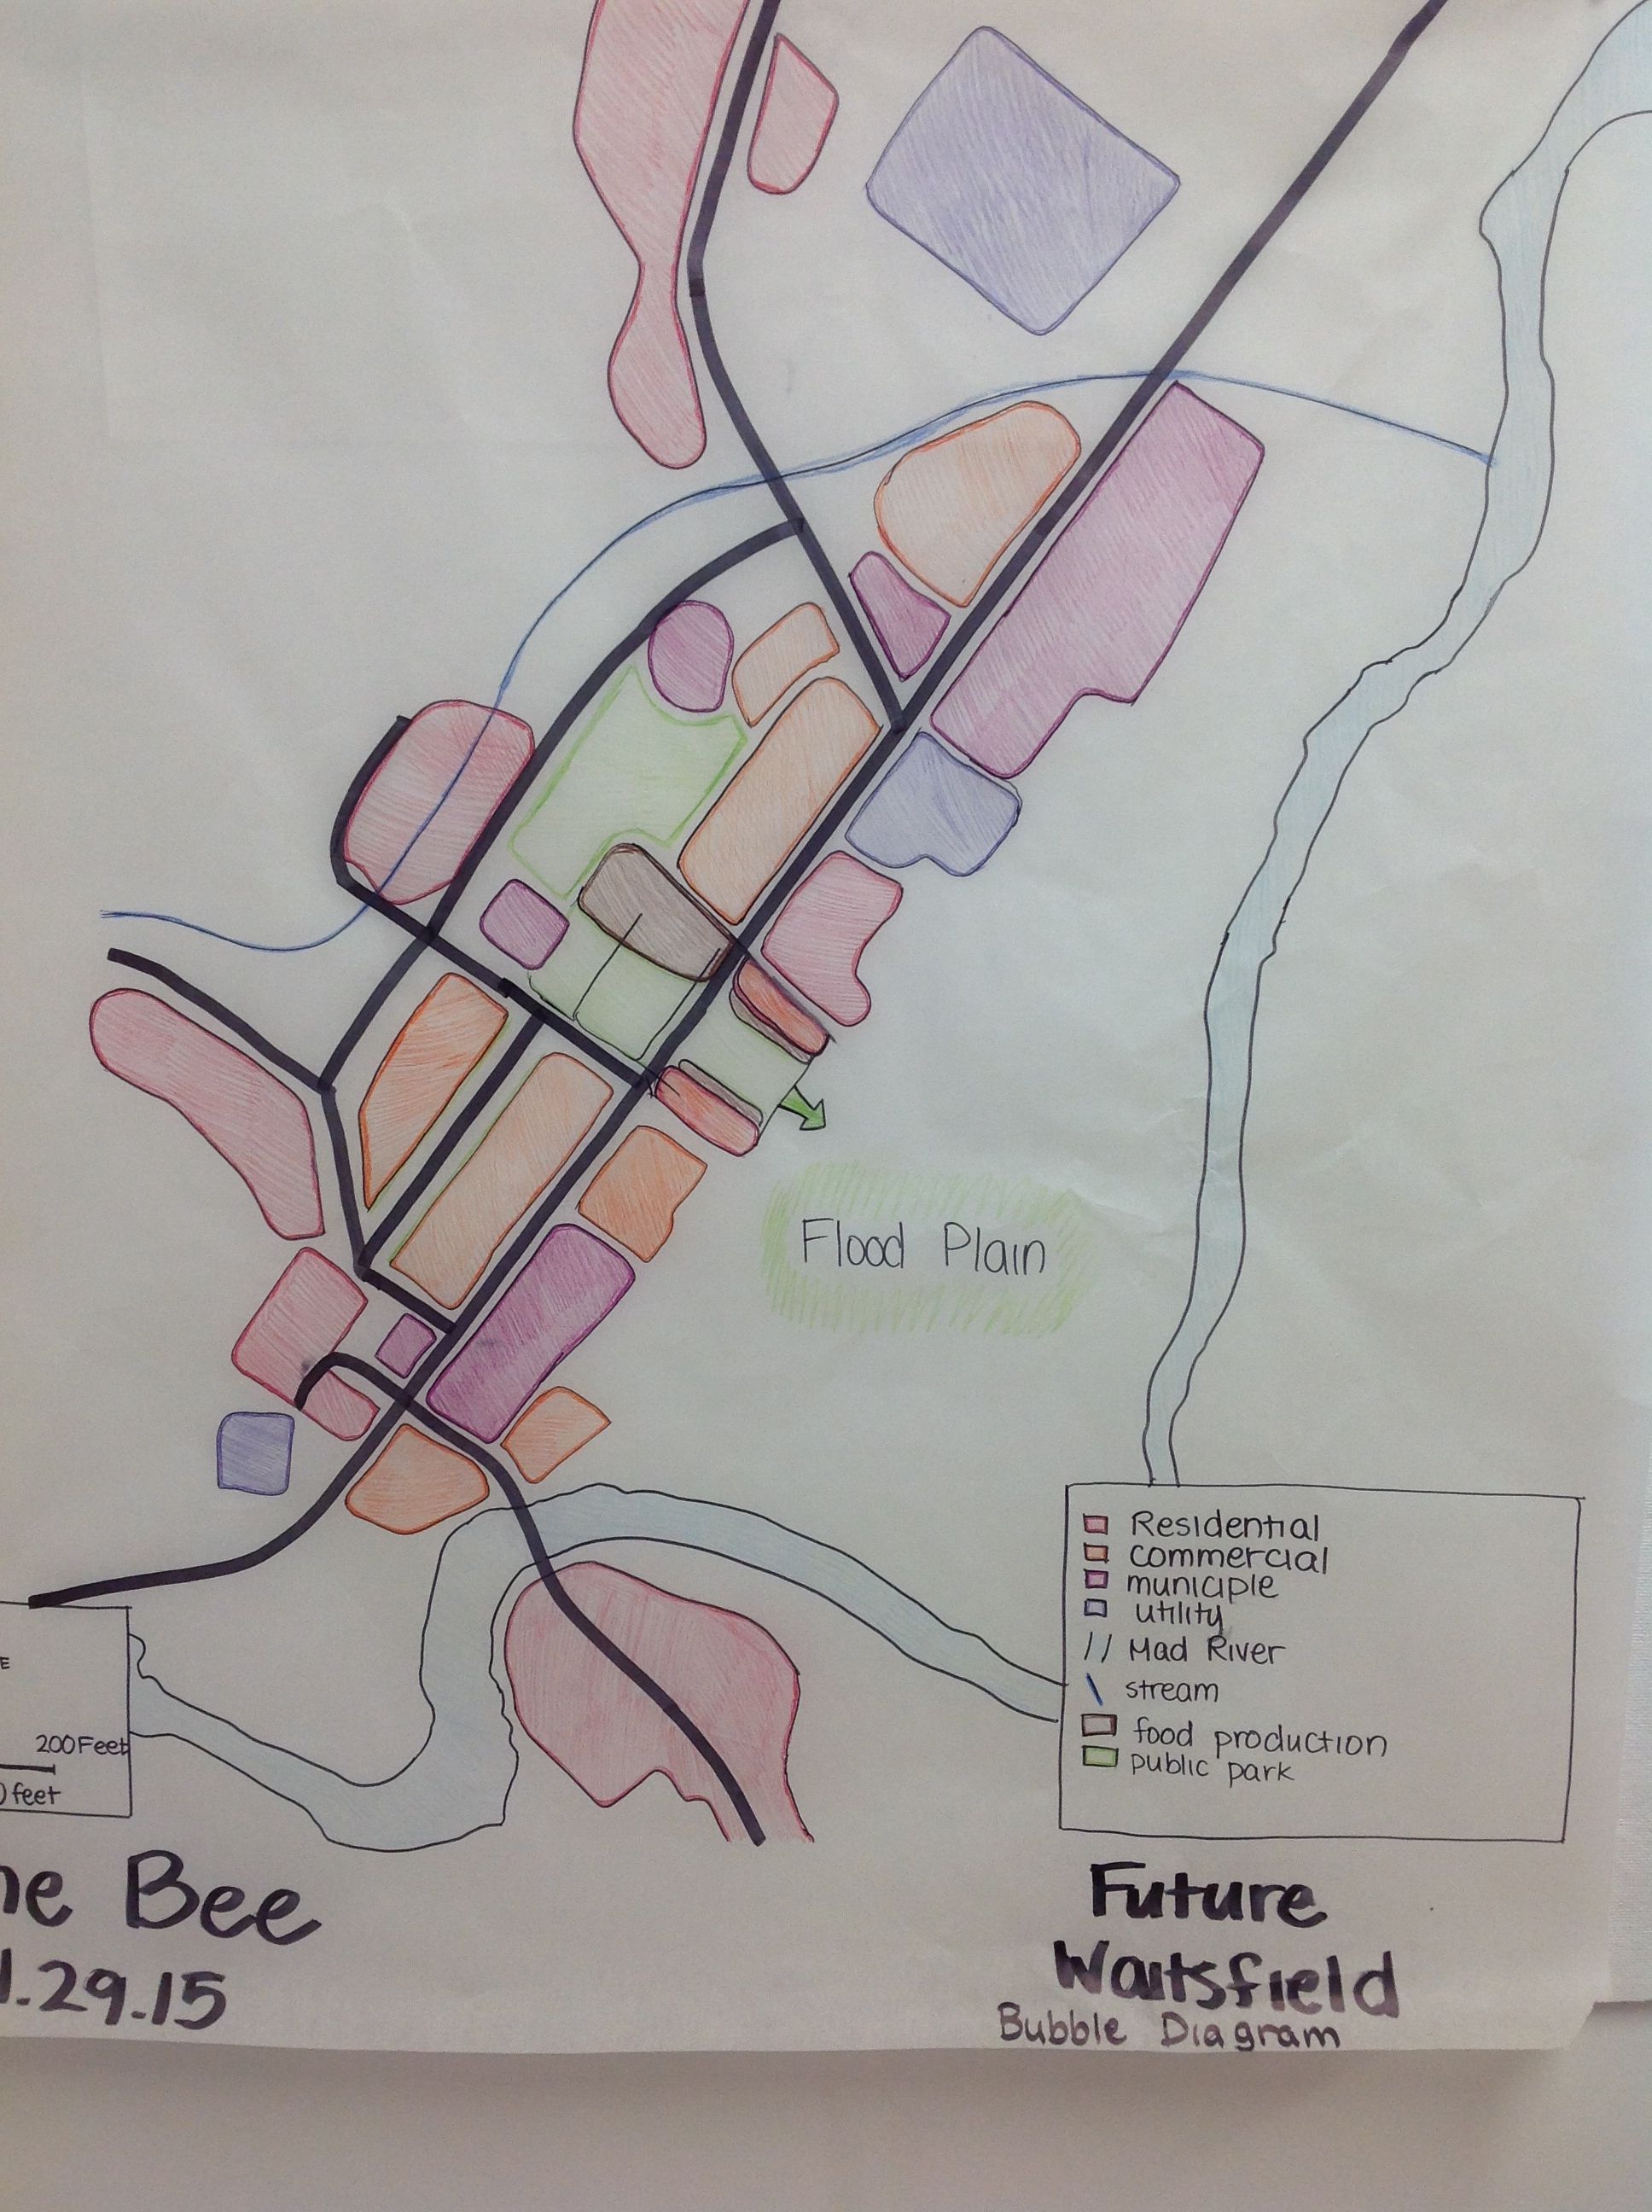 Flood Plain
Residential
commercial
municiple
utility
Mad River
stream
food production
public park
200 Feet
feet
Bee
.29.15
Future
Waitsfield
Bubble Diagram